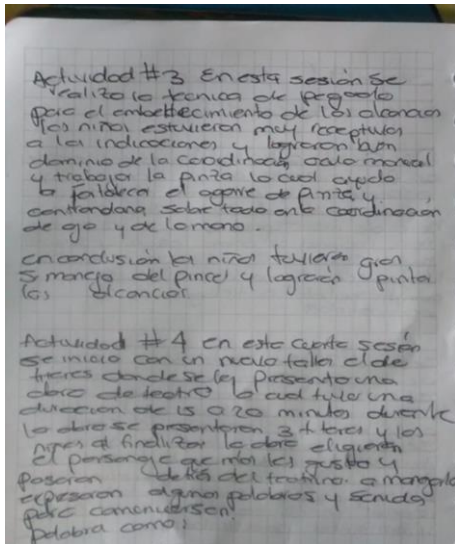 Actividad #3 En esta sesión se
realizo la tecnica de pegado
para el embellecimiento de los alcancias
los niños estuvieron muy receptivos
a las indicaciones y lograron buen
dominio de la coordinación oculo manual
y trabajar la pinza lo cual ayudo
a el agarre de pinza y
sobre todo coordinación
de ojo y de la mano.
en conclusión los niños tuvieron gran
manejo del pincel y lograron pintar
las alcancias
Actividad # 4 en esta cuarta sesión
se inicio con un nuevo taller el de
titeres donde se les presento una
obra de teatro la cual tuvo una
duracion de 15 a 20 minutos durante
la obra se presentaron 3 titeres y los
niños al finalizar la obra eligieron
el personaje que mas les gusto y
pasaron detras del teatrino a
expresaron algunas palabras y
para
palabra como: